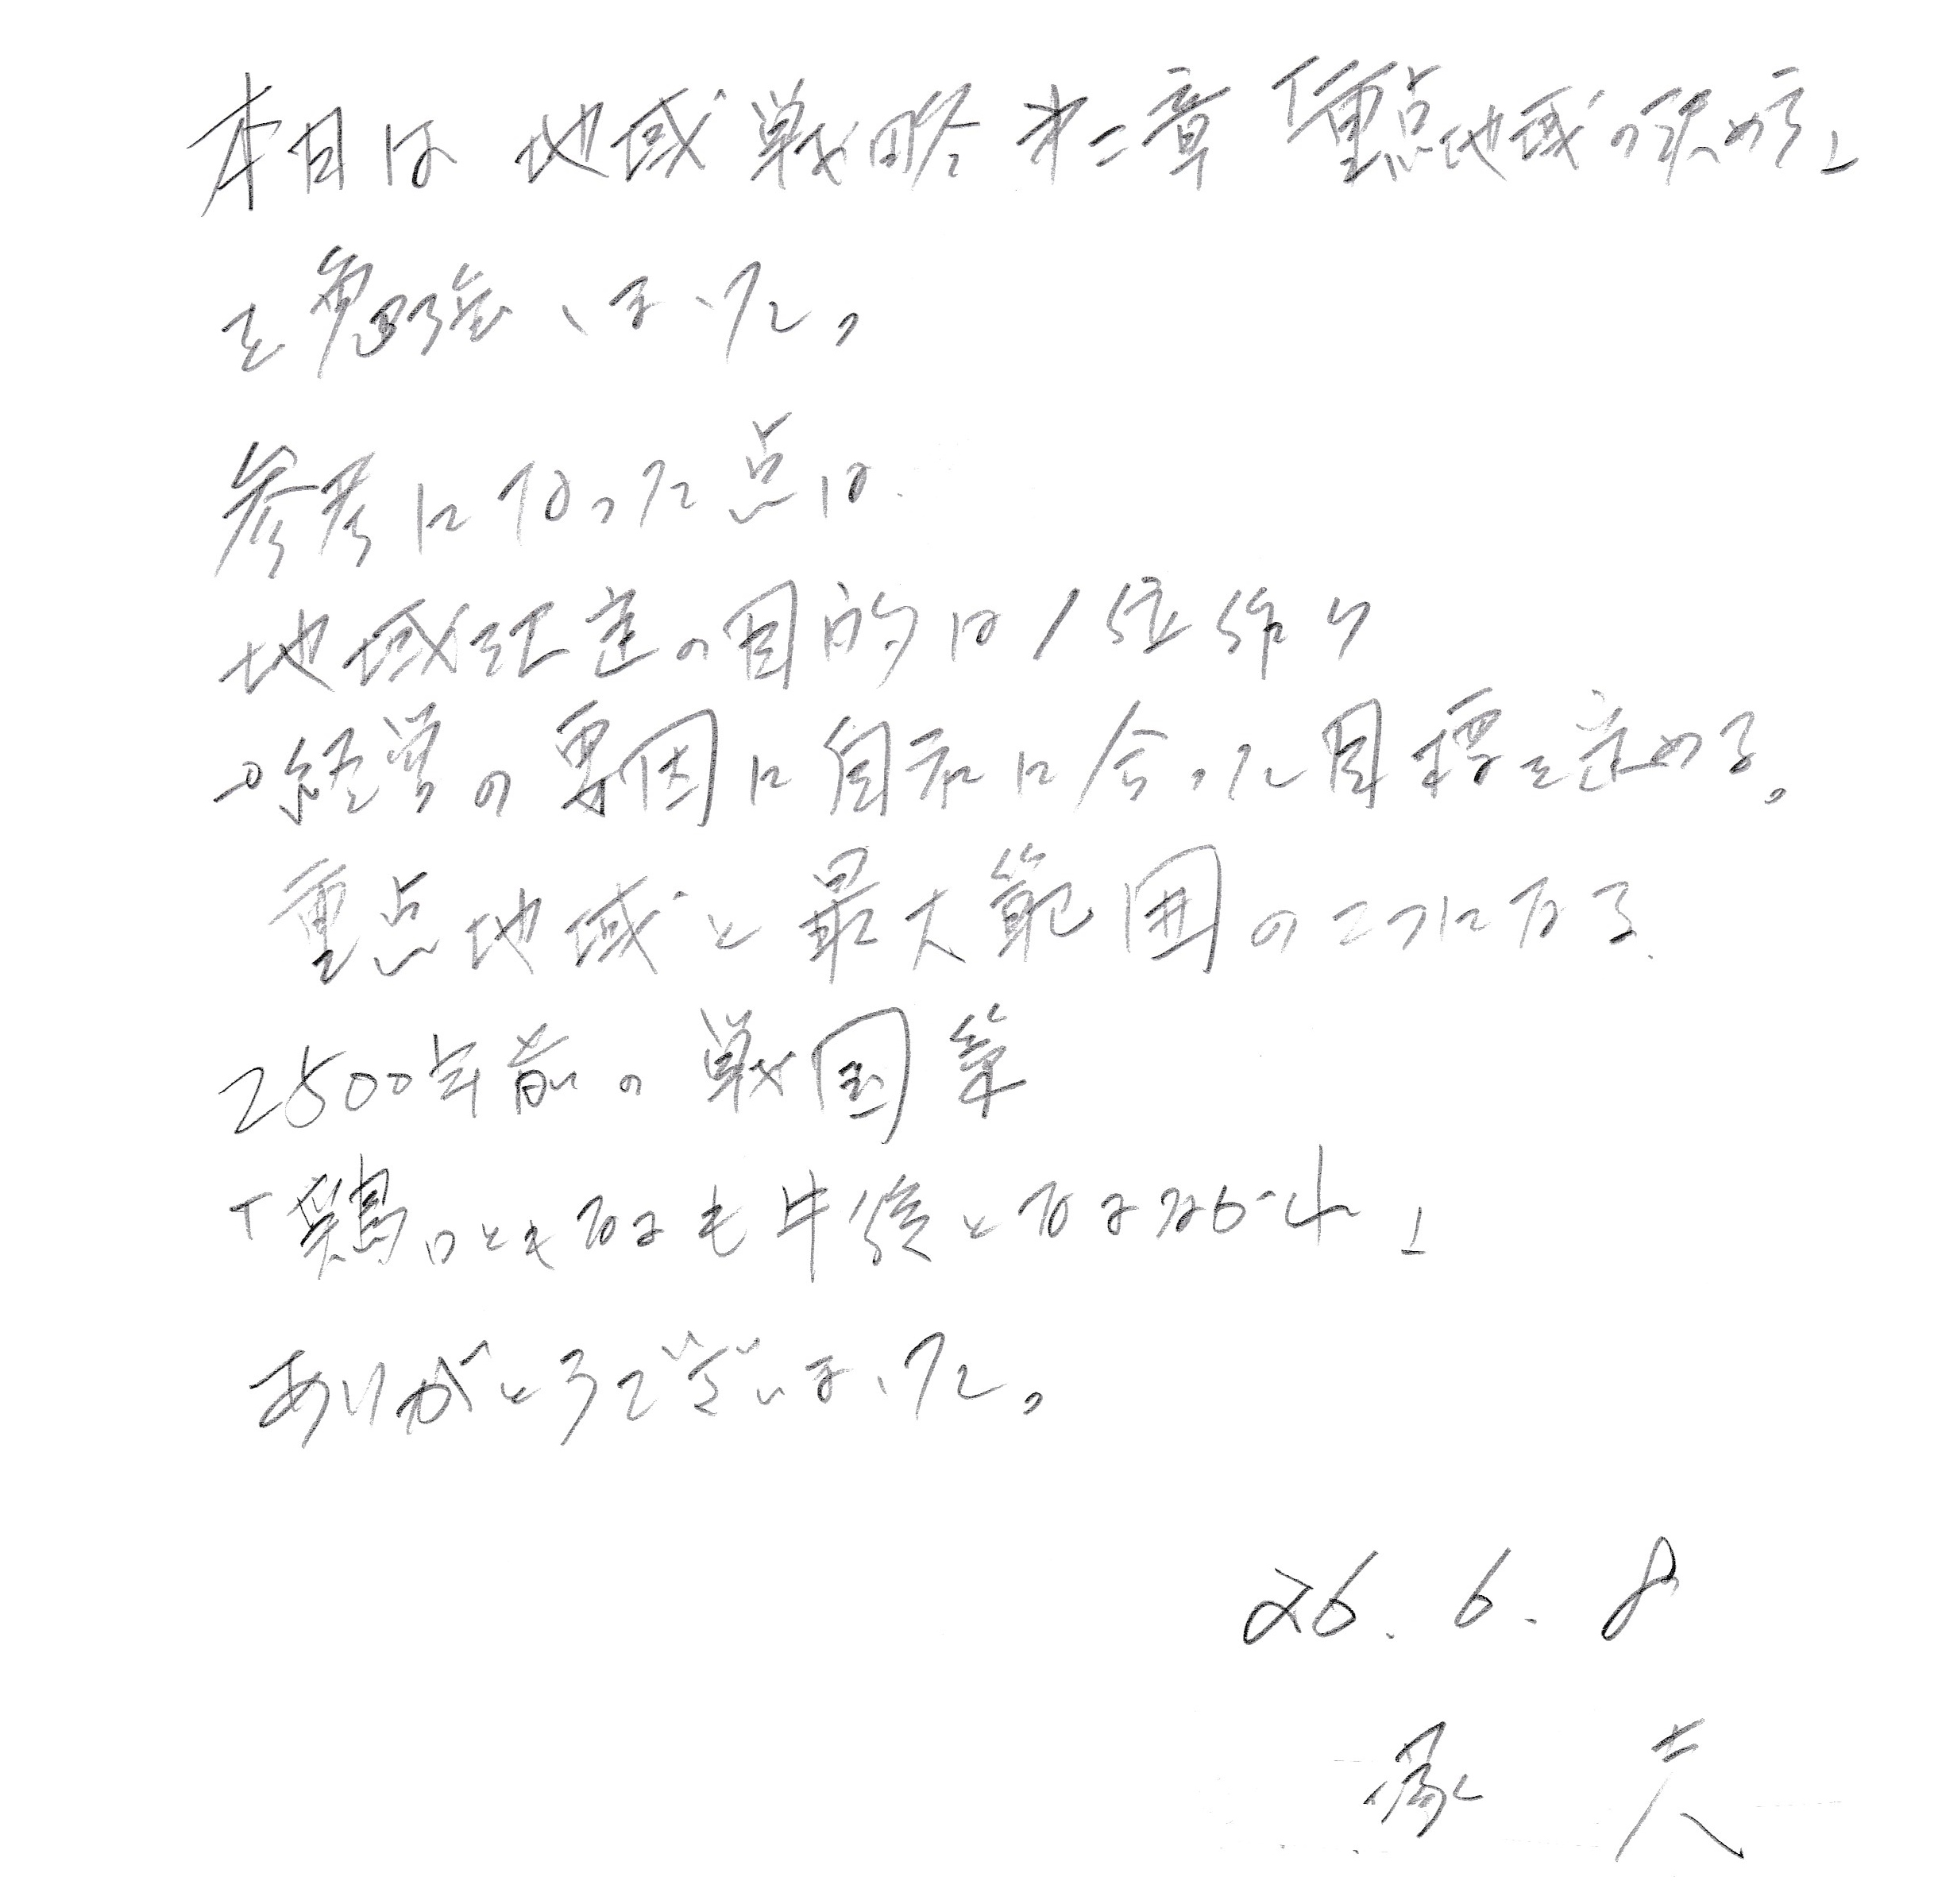 本日は 地域戦略 第二章 「重点地域の決め方」
を勉強しました。
参考になった点は
地域経営の目的は1位作り
→経営の要因に自社に合った目標を定める。
重点地域と最大範囲の二つになる
2500年前の 戦国策
「鶏口ともなるも牛後となるなかれ」
ありがとうございました。
26.6.8
夫